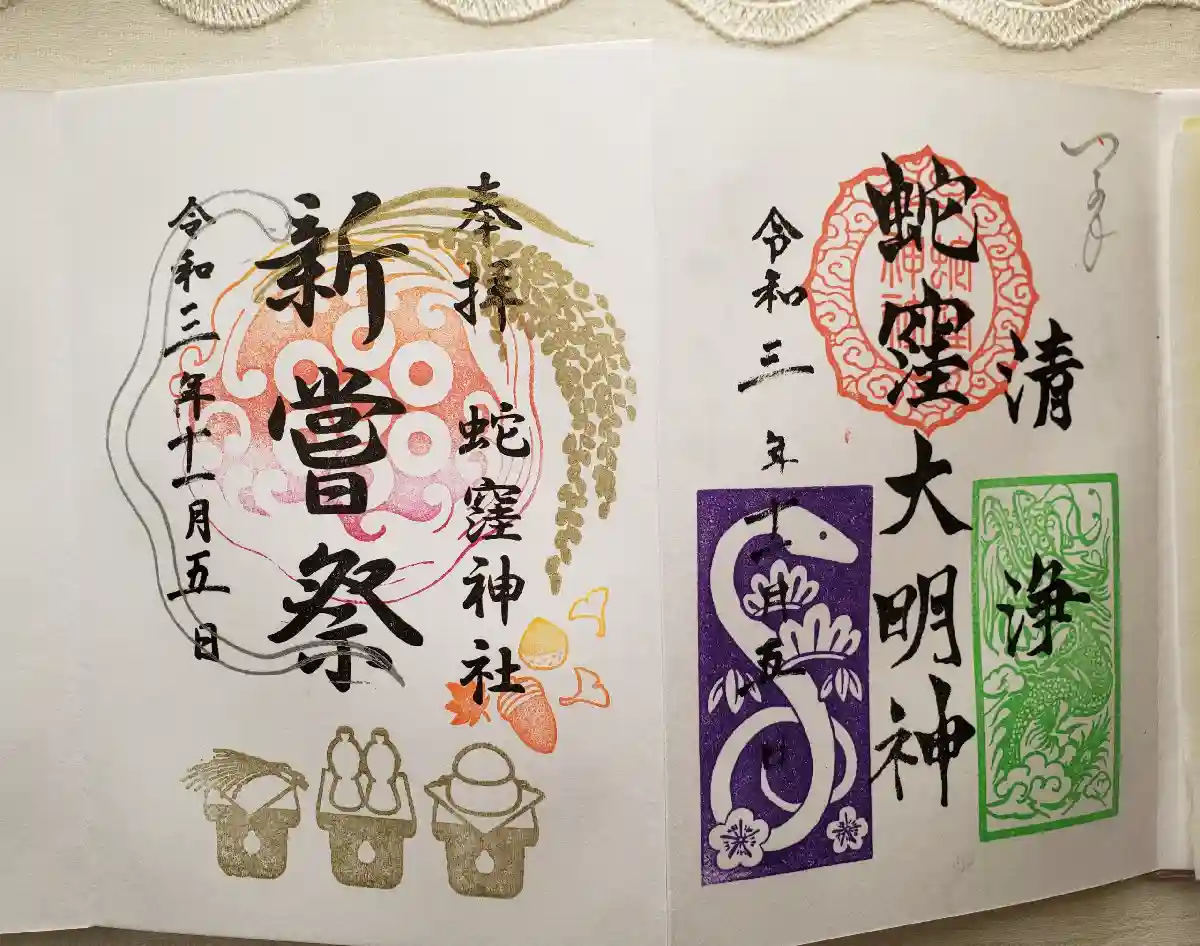 清浄
蛇窪大明神
令和三年十一月五日
奉拝 蛇窪神社
新嘗祭
令和三年十一月五日